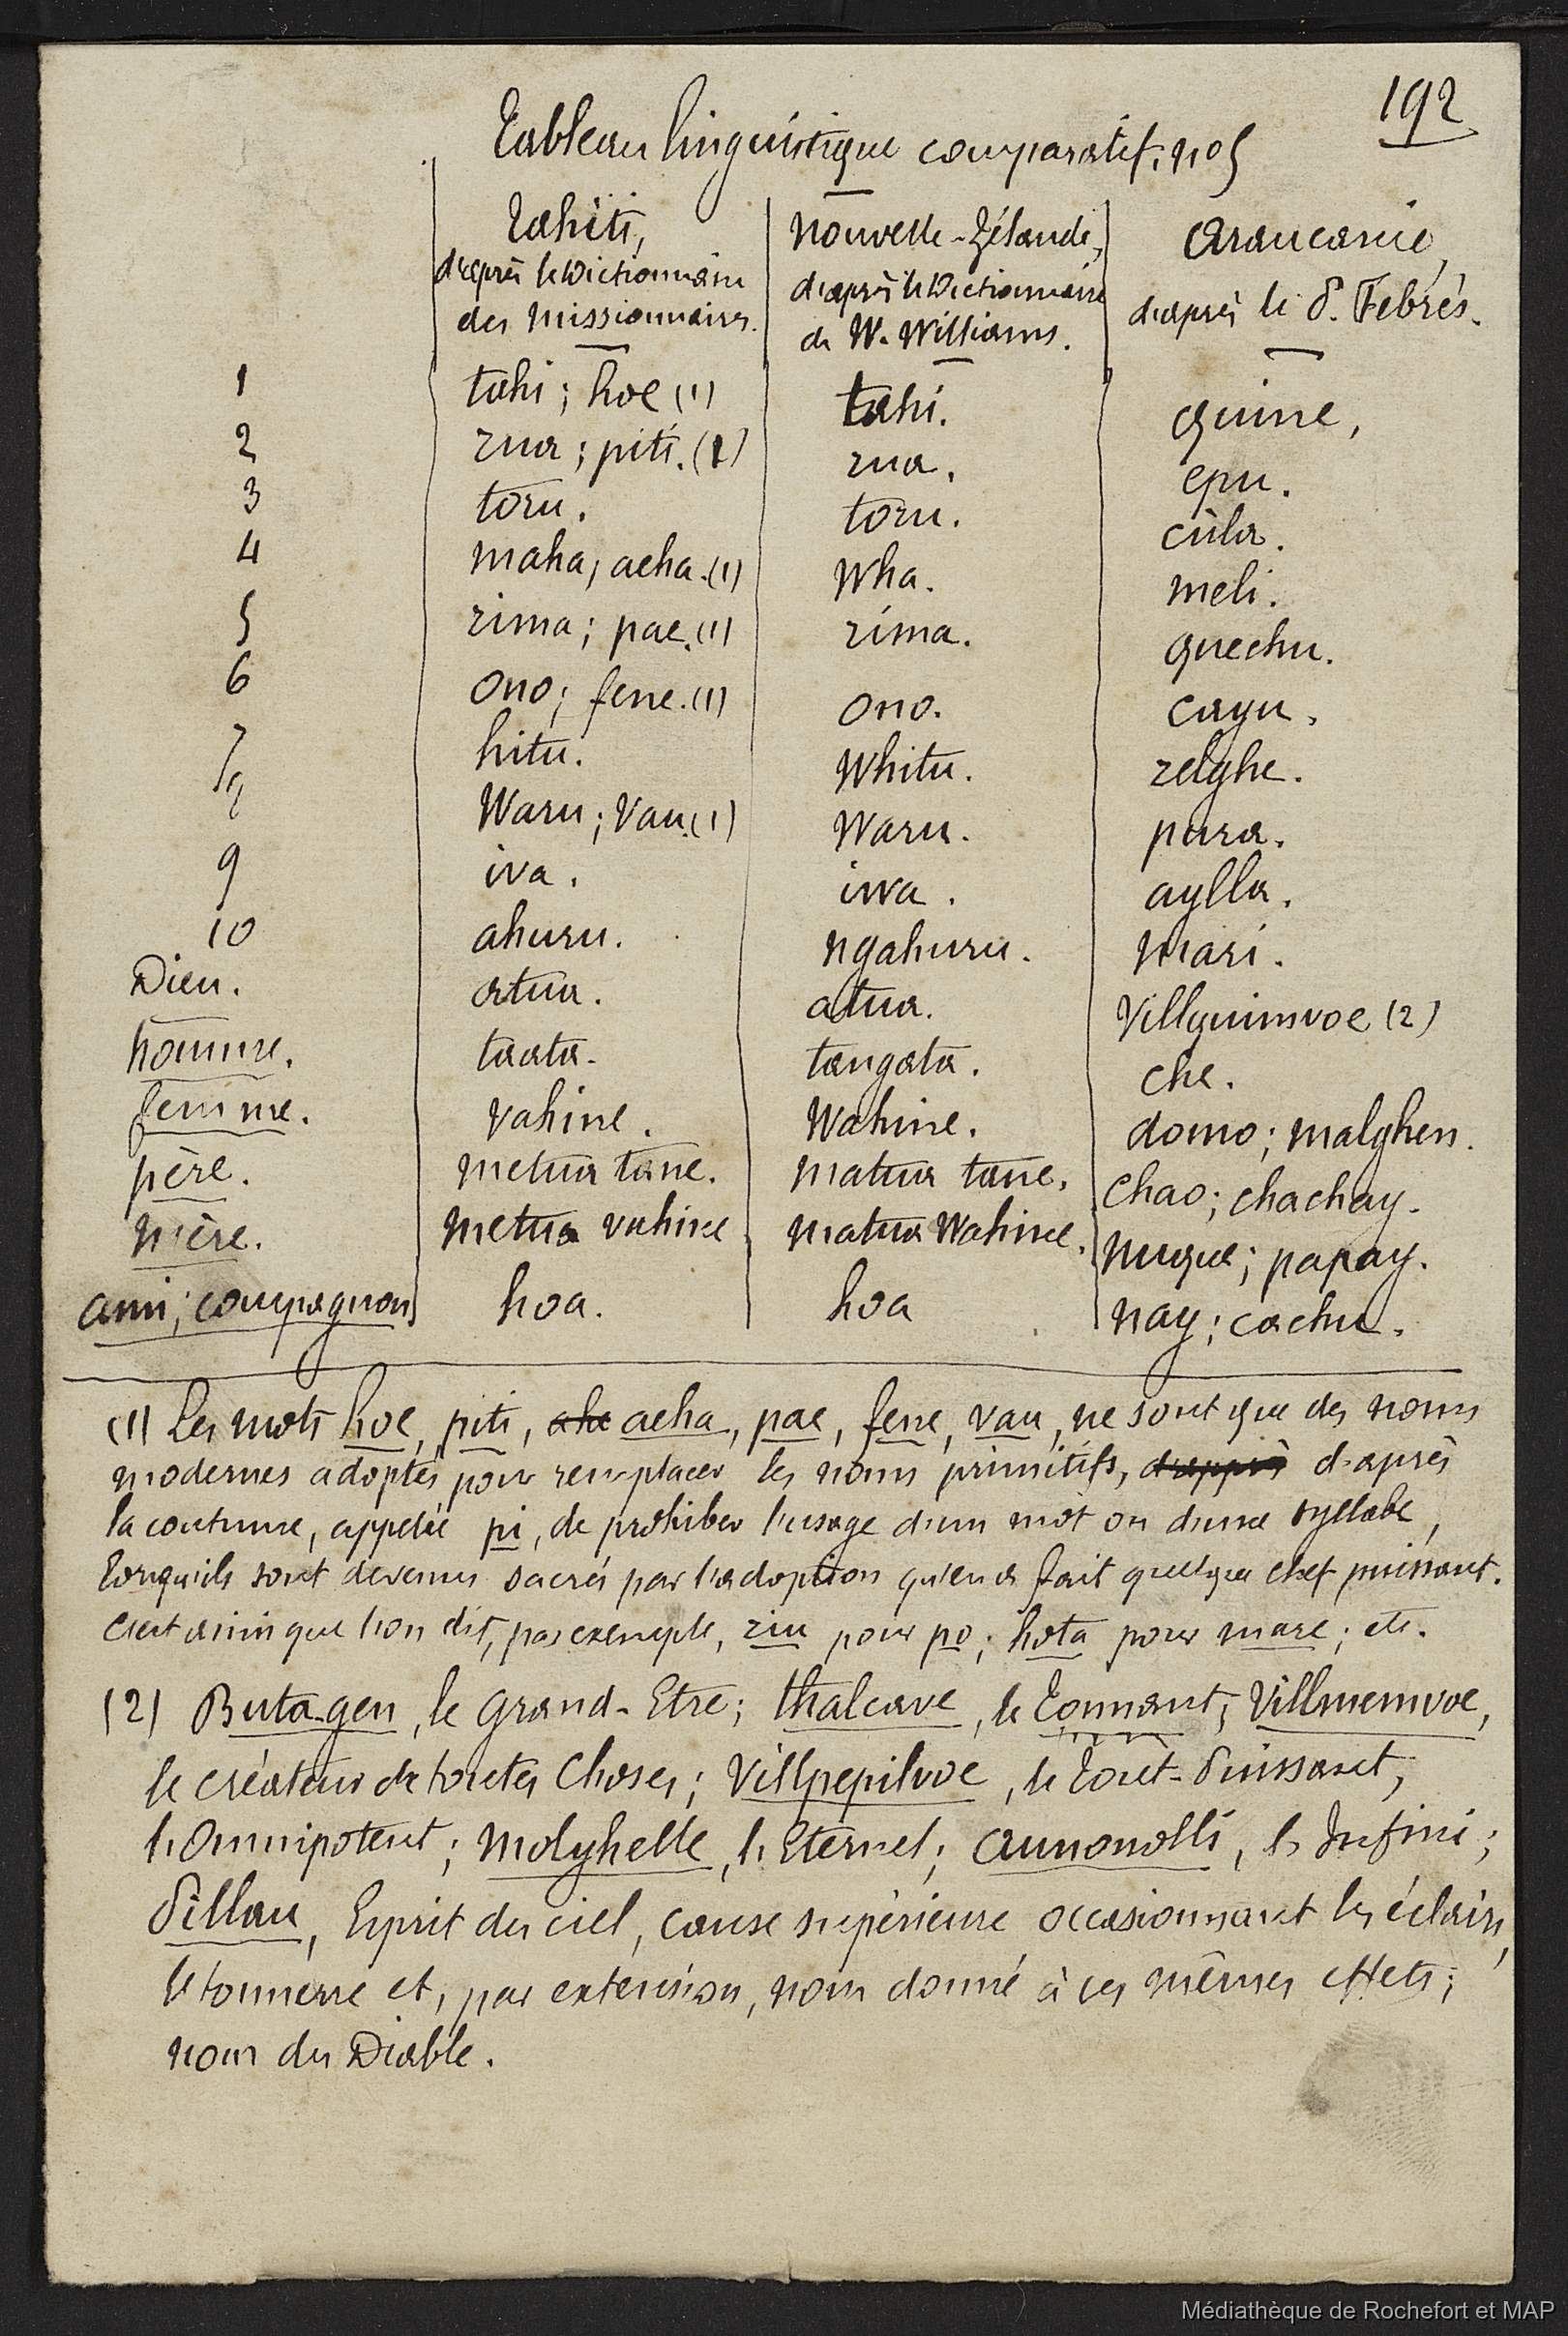 192
Tableau linguistique comparatif, no 5
Tahiti, d'après le Dictionnaire des Missionnaires. | Nouvelle-Zélande, d'après le Dictionnaire de W. Williams. | Araucanie, d'après le P. Febrès.
1 | tahi; hoe (1) | tahi. | quine,
2 | rua; piti. (1) | rua. | epu.
3 | toru. | toru. | cùla.
4 | maha; aeha. (1) | wha. | meli.
5 | rima; pae. (1) | rima. | quechu.
6 | ono; fene. (1) | ono. | cayu.
7 | hitu. | whitu. | relghe.
8 | waru; vau. (1) | waru. | pura.
9 | iva. | iwa. | aylla.
10 | ahuru. | ngahuru. | mari.
Dieu. | atua. | atua. | Villguinvoe (2)
homme. | taata. | tangata. | che.
femme. | vahine. | wahine. | domo; malghen.
père. | metua tane. | matua tane. | chao; chachay.
mère. | metua vahine | matua wahine. | nuque; papay.
ami; compagnon | hoa. | hoa | nay; cachu.
(1) Les mots hoe, piti, aha aeha, pae, fene, vau, ne sont que des noms
modernes adoptés pour remplacer les noms primitifs, d'après d'après
la coutume, appelée pi, de prohiber l'usage d'un mot ou d'une syllabe,
lorsqu'ils sont devenus sacrés par l'adoption qu'en a fait quelque chef puissant.
C'est ainsi que l'on dit, par exemple, riu pour po; hota pour mare; etc.
(2) Buta-gen, le Grand-Etre; thalcave, le Tonnant; Villmemvoe,
le créateur de toutes choses; Villpepilvoe, le Tout-Puissant,
l'Omnipotent; Molghelle, l'Eternel; Aunonolli, l'Infini;
Pillau, Esprit du ciel, cause supérieure occasionnant les éclairs,
le tonnerre et, par extension, nom donné à ces mêmes effets;
nom du Diable.
Médiathèque de Rochefort et MAP